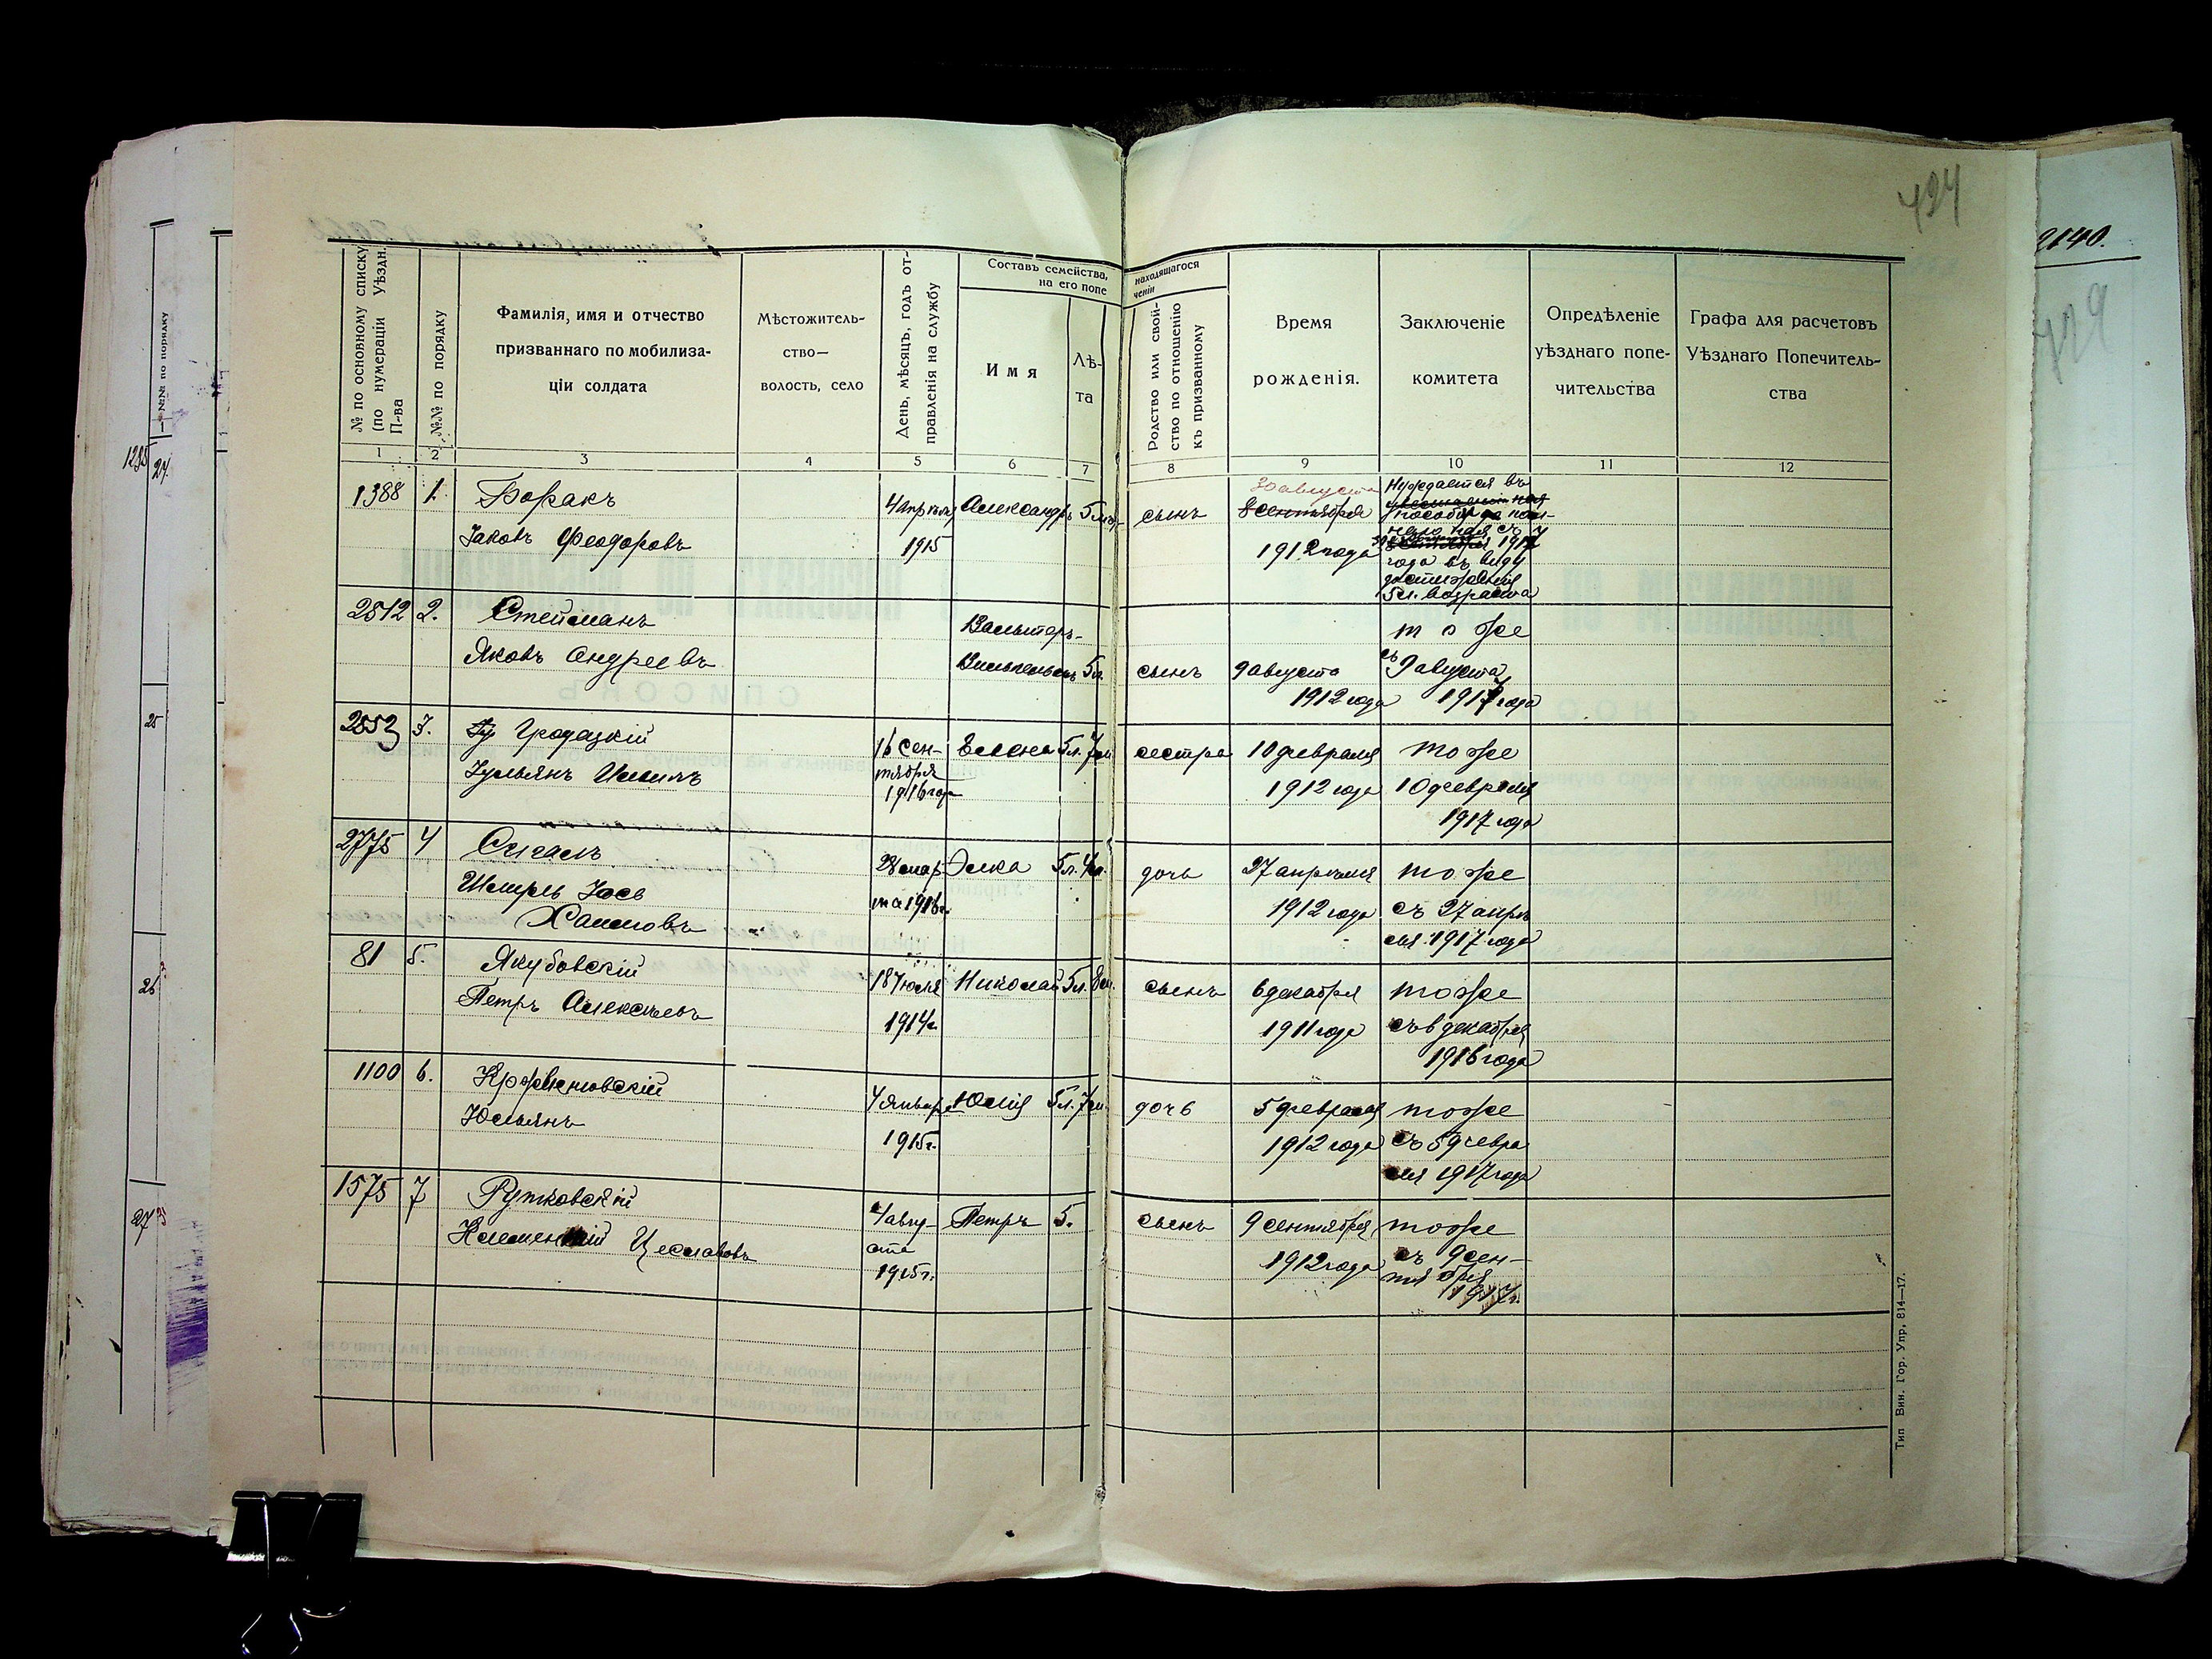 424
2140.
429
№№ по порядку
1285 24.
25
26
27
№ по основному списку (по нумераціи Уѣздн. П-ва
№№ по порядку
Фамилія, имя и отчество
призваннаго по мобилиза-
ціи солдата
Мѣстожитель-
ство—
волость, село
День, мѣсяцъ, годъ от-
правленія на службу
Составъ семейства, находящагося
на его попеченіи
Имя
Лѣ-
та
Родство или свой-
ство по отношенію
къ призванному
Время
рожденія.
Заключеніе
комитета
Опредѣленіе
уѣзднаго попе-
чительства
Графа для расчетовъ
Уѣзднаго Попечитель-
ства
1 2 3 4 5 6 7 8 9 10 11 12
1388 1. Боракъ
Іаковъ Феодоровъ
4 апрѣля
1915
Александръ 5 лѣтъ
сынъ
30 августа
8 сентября
1912 года
Нуждается въ
пособіи
1917
года въ виду
достиженія
5 л. возраста
2812 2. Стейманъ
Яковъ Андреевъ
Вальтеръ-
Вильгельмъ 5 л.
сынъ
9 августа
1912 года
то же
съ 9 августа
1917 года
2853 3. Гродзкій
Іульянъ
16 сен-
тября
1916 год
Елена 5 л. 7 м
сестра
10 февраля
1912 года
то же
10 февраля
1917 года
2775 4 Сигалъ
Шмуль Іось
Хаимовъ
28 мар
та 1916 г.
Элка 5 л. 4 м.
дочь
27 апрѣля
1912 года
то же
съ 27 апрѣ
ля 1917 года
81 5. Якубовскій
Петръ Алексѣевъ
18 іюля
1914 г.
Николай 5 л. 8 м.
сынъ
6 декабря
1911 года
то же
съ 6 декабря
1916 года
1100 6.
Юльянъ
4 января
1915 г.
Юлія 5 л. 7 м.
дочь
5 февраля
1912 года
то же
съ 5 февра
ля 1917 года
1575 7 Рутковскій
Цеславовъ
4 авгу-
ста
1915 г.
Петръ 5.
сынъ
9 сентября
1912 года
то же
съ 9 сен-
тября
1917 г.
Тип Вин. Гор. Упр, 814—17.